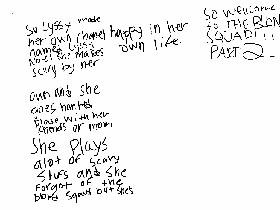 So Lyssy made
her own (name) happy in her
names Lyss own life.
Not she makes
scary by her
own and she
goes
place with her
friends or mom,
She Plays
alot of scary
stufs and she
Forgot of the
blong Squad but she's
SO Welcome
to THE BLON
SQUAD!!!
PAST 2